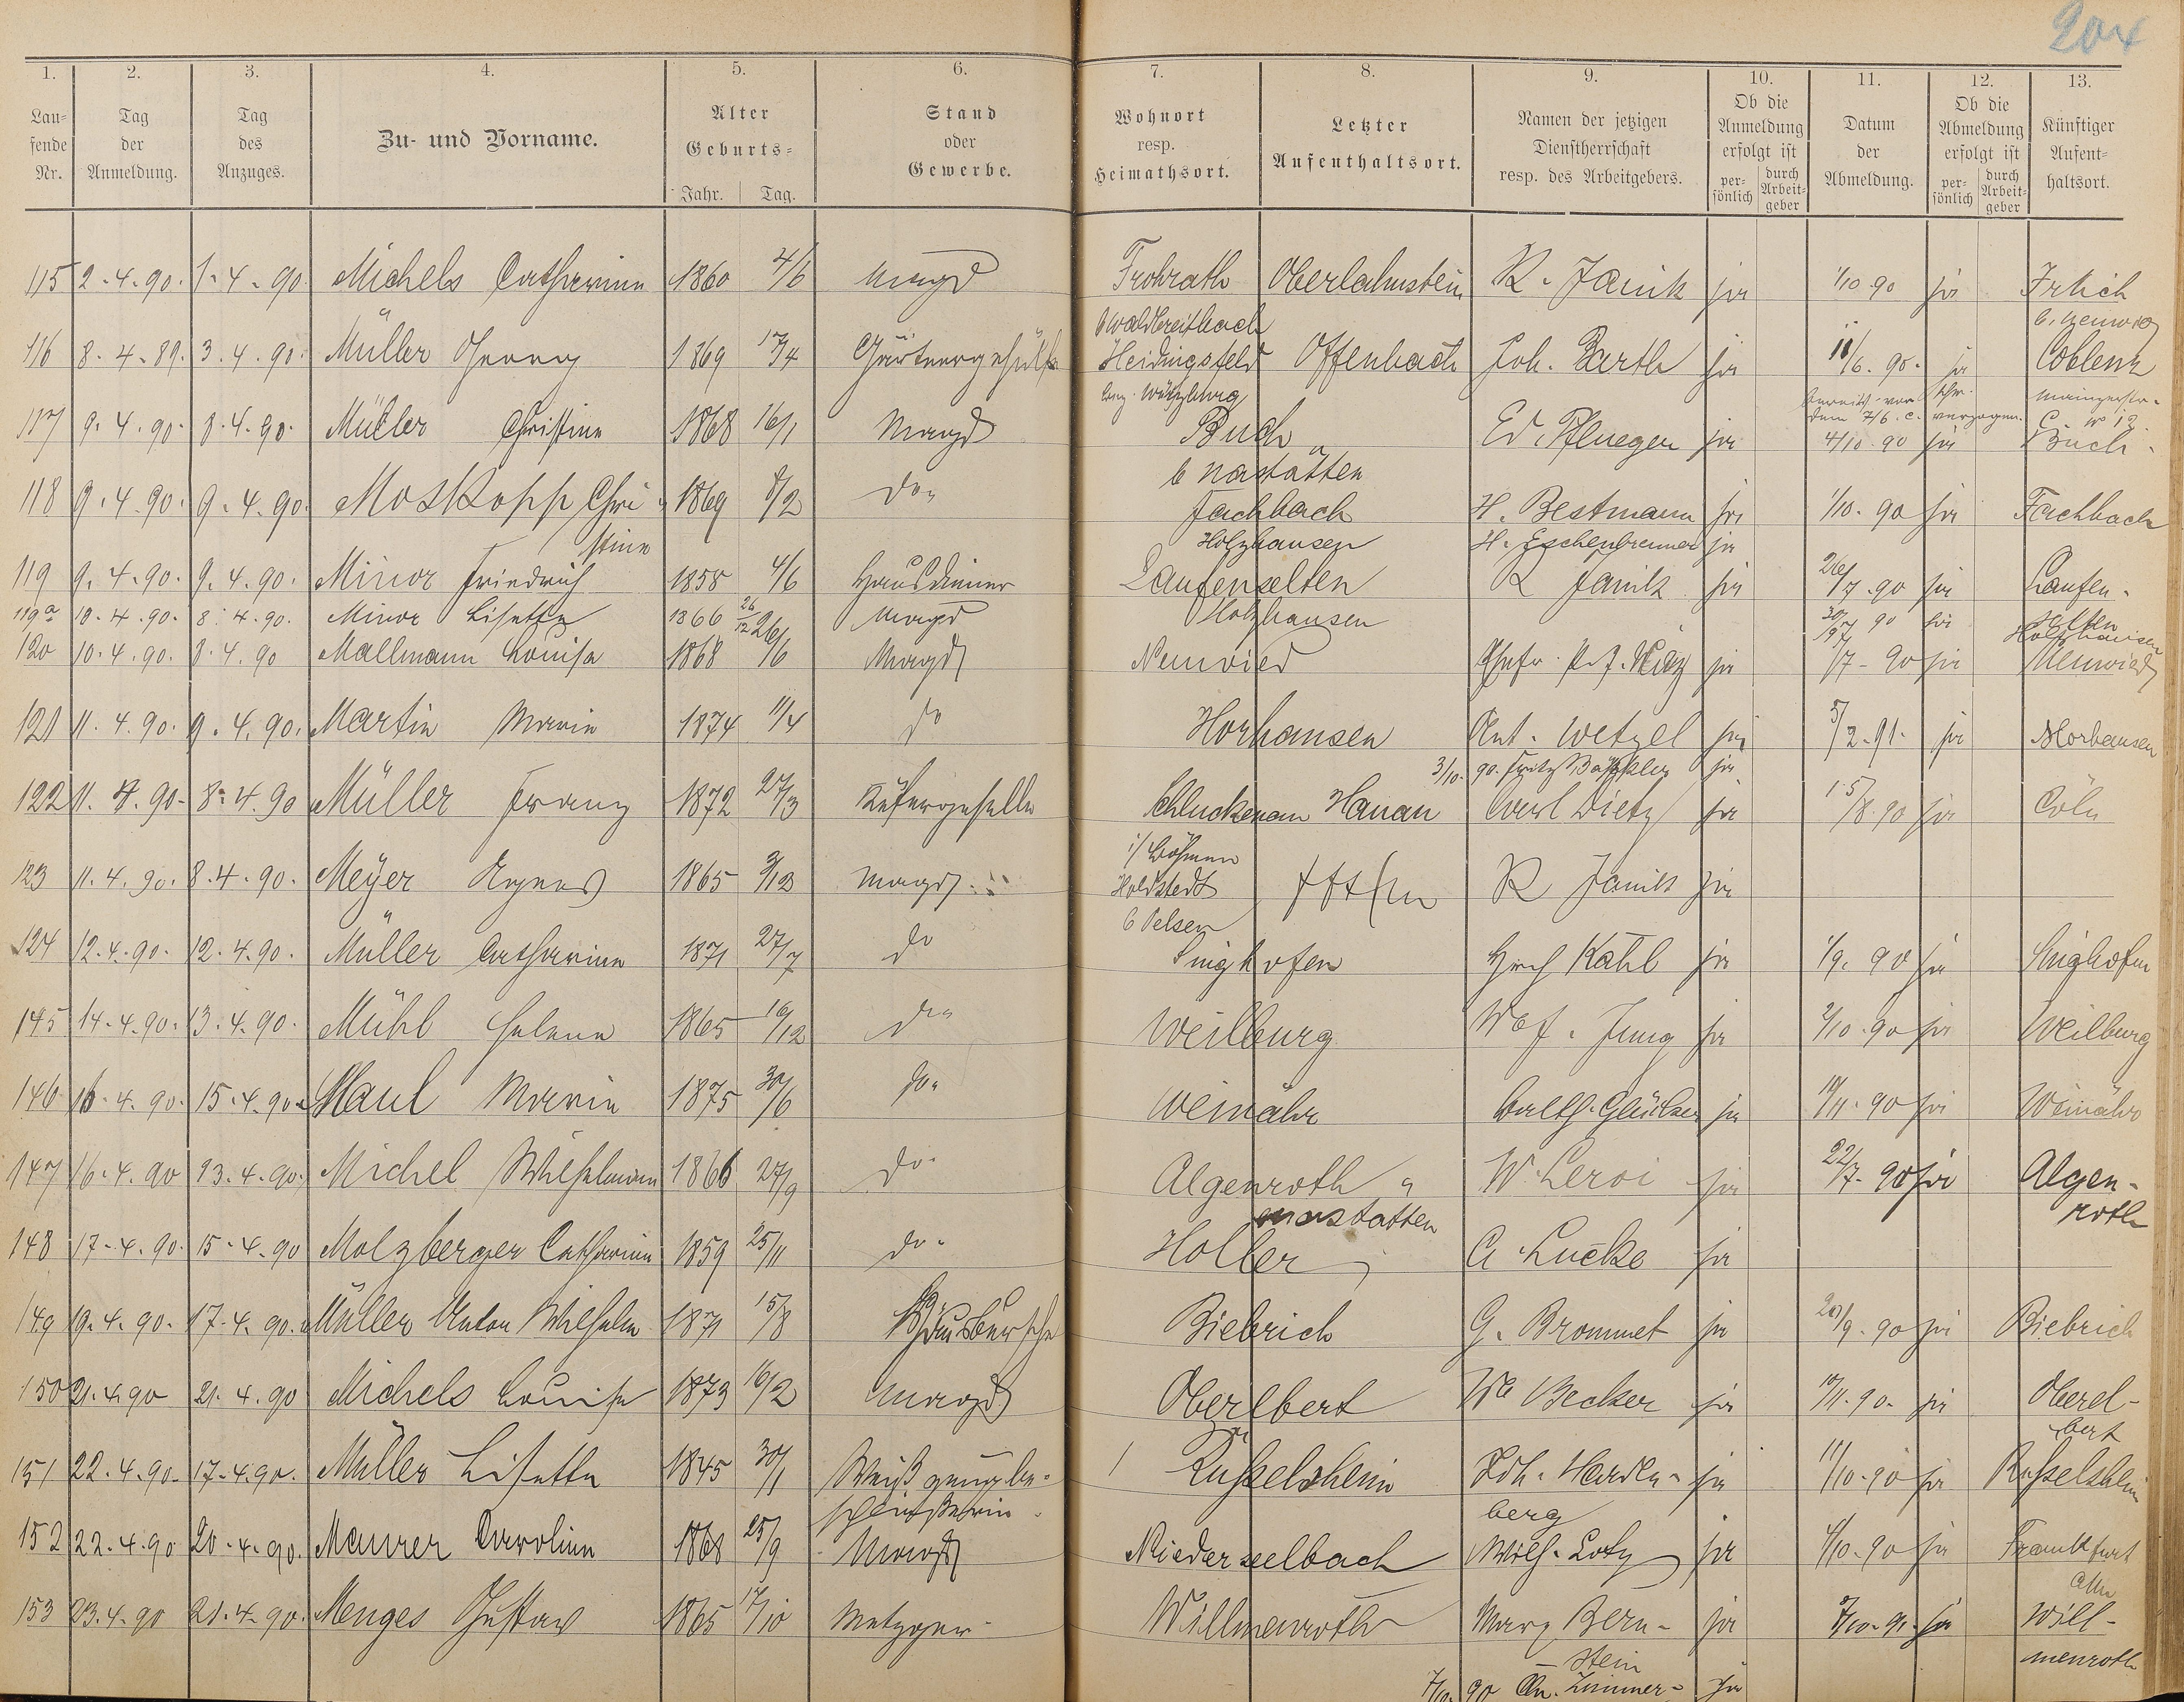 204
1. 2. 3. 4. 5. 6. 7. 8. 9. 10. 11. 12. 13.
Laufende Nr. Tag der Anmeldung. Tag des Anzuges. Zu- und Vorname. Alter Geburts- Jahr. Tag. Stand oder Gewerbe. Wohnort resp. Heimathsort. Letzter Aufenthaltsort. Namen der jetzigen Dienstherrschaft resp. des Arbeitgebers. Ob die Anmeldung erfolgt ist persönlich durch Arbeitgeber Datum der Abmeldung. Ob die Abmeldung erfolgt ist persönlich durch Arbeitgeber Künftiger Aufenthaltsort.
115 2.4.90. 1.4.90. Michels Catharina 1860 4/6 Magd Frohrath Oberlahnstein R. Janik ja 1/10 90 ja Irlich
b Waldbreitbach b. Neuwied
116 8.4.89. 3.4.90. Müller Georg 1869 17/4 Gärtnergehülfe Heidingsfeld Offenbach Joh. Barth ja 11/6. 90. ja Coblenz
bez. Würzburg dem 7/6. c. verzogen. Mainzerstr.
117 9.4.90. 8.4.90. Müller Christine 1868 16/1 Magd Buch " Ed. Pflueger ja 4/10 90 ja Buch.
b Nastätten
118 9.4.90. 9.4.90. Moskopp Christine 1869 8/2 do" Fachbach H. Bestmann ja 1/10. 90 ja Fachbach
Holzhausen H. Eschenbrenner ja
119 9.4.90. 9.4.90. Minor Friedrich 1858 4/6 Hausdiener Laufenselten R Janik ja 26/7.90 ja Laufenselten
119a 10.4.90. 8.4.90. Minor Lisette 1866 26/12 Magd Holzhausen 30/7 90 ja Holzhausen
120 10.4.90. 8.4.90 Mallmann Louisa 1868 26/6 Magd Neuwied ja 19/7 - 90 ja Neuwied
121 11.4.90. 9.4.90. Martin Maria 1874 11/4 do Horhausen Ant. Wetzel ja 5/2.91. ja Horhausen
3/10. 90. Fritz ja
122 11.4.90. 8.4.90 Müller Franz 1872 27/3 Küfergeselle Schluckenau Hanau Carl Dietz ja 15/8.90 ja Cöln
i/ Böhmen
123 11.4.90. 8.4.90. Meyer Agnes 1865 3/12 Magd. Holdstedt R Janik ja
b Oelsen
124 12.4.90. 12.4.90. Müller Catharina 1871 27/7 do Singhofen Kahl ja 1/9. 90 ja Singhofen
145 14.4.90. 13.4.90. Mühl Helena 1865 16/12 do" Weilburg Jung ja 2/10.90 ja Weilburg
146 16.4.90. 15.4.90. Maul Maria 1875 30/6 do" Weinähr ja 10/11.90 ja Weinähr
147 16.4.90 13.4.90. Michel Wilhelmine 1866 27/9 do. Algenroth " W. Leroi ja 22/7.90 ja Algenroth
Nastätten
148 17.4.90. 15.4.90 Molzberger Catharina 1859 25/11 do. Holler C. Lucke ja
149 19.4.90. 17.4.90. Müller Anton Wilhelm 1871 15/8 Hausbursche Biebrich G. Brommet ja 20/9.90 ja Biebrich
150 21.4.90 21.4.90 Michels Louisa 1873 16/2 Magd Oberelbert We Becker ja 10/11.90. ja Oberelbert
151 22.4.90. 17.4.90. Müller Lisette 1845 30/1 Weißzeugbeschließerin. Rüsselsheim Hardenberg ja 11/10.90 ja Rüsselsheim
152 22.4.90 20.4.90. Maurer Carolina 1868 25/9 Magd Niederselbach Wilh. Lotz ja 4/10.90 ja Frankfurt
a/m
153 23.4.90 21.4.90. Menges Gustav 1865 17/10 Metzger Willmenroth Marx Bernstein ja 7/10.91 ja Willmenroth
7/10. 90 An. Zimmer- ja